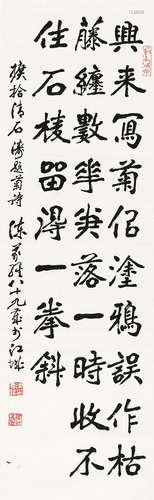 興来寫菊侣塗鴉誤作枯
藤纏數華筆落一時收不
住石棱留得一拳斜
摭拾清石濤題菊詩 陳義經八十九歲書於江城